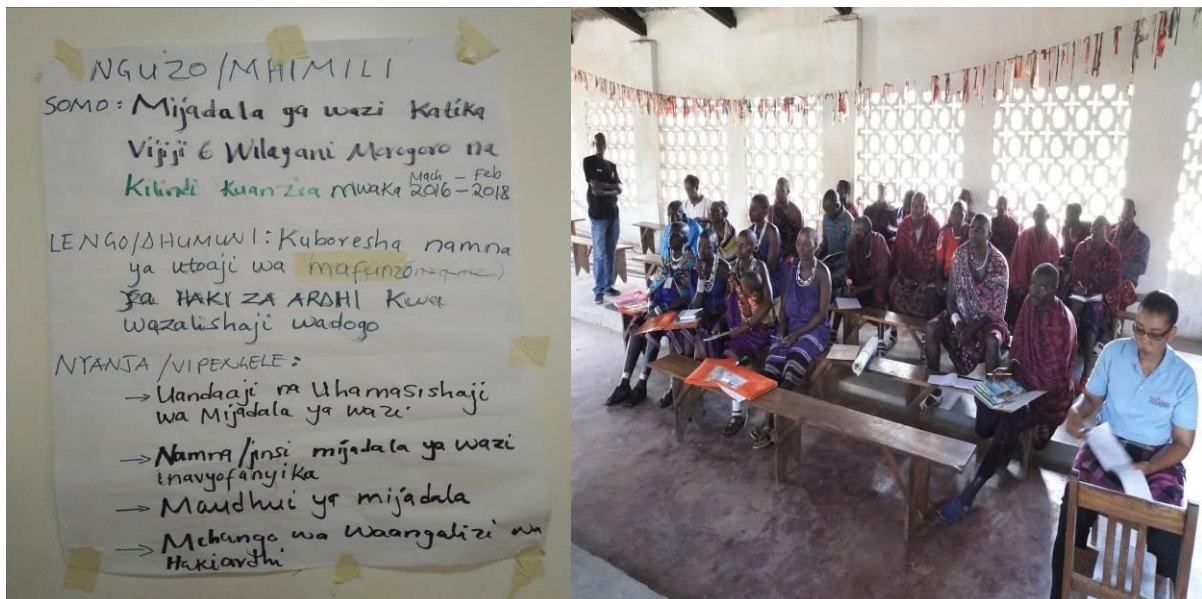 NGUZO/MHIMILI
SOMO: Mijadala ya wazi Katika
Vijiji 6 Wilayani Morogoro na
Mach - Feb
Kilindi Kuanzia mwaka 2016-2018
LENGO/DHUMUNI: Kuboresha namna
ya utoaji wa mafunzo
ya HAKI ZA ARDHI Kwa
wazalishaji wadogo
NYANJA/VIPENGELE:
→ Uandaaji na Uhamasishaji
wa Mijadala ya wazi
→ Namna/jinsi mijadala ya wazi
inavyofanyika
→ Maudhui ya mijadala
→ Mchango wa Waangalizi wa
Hakiardhi